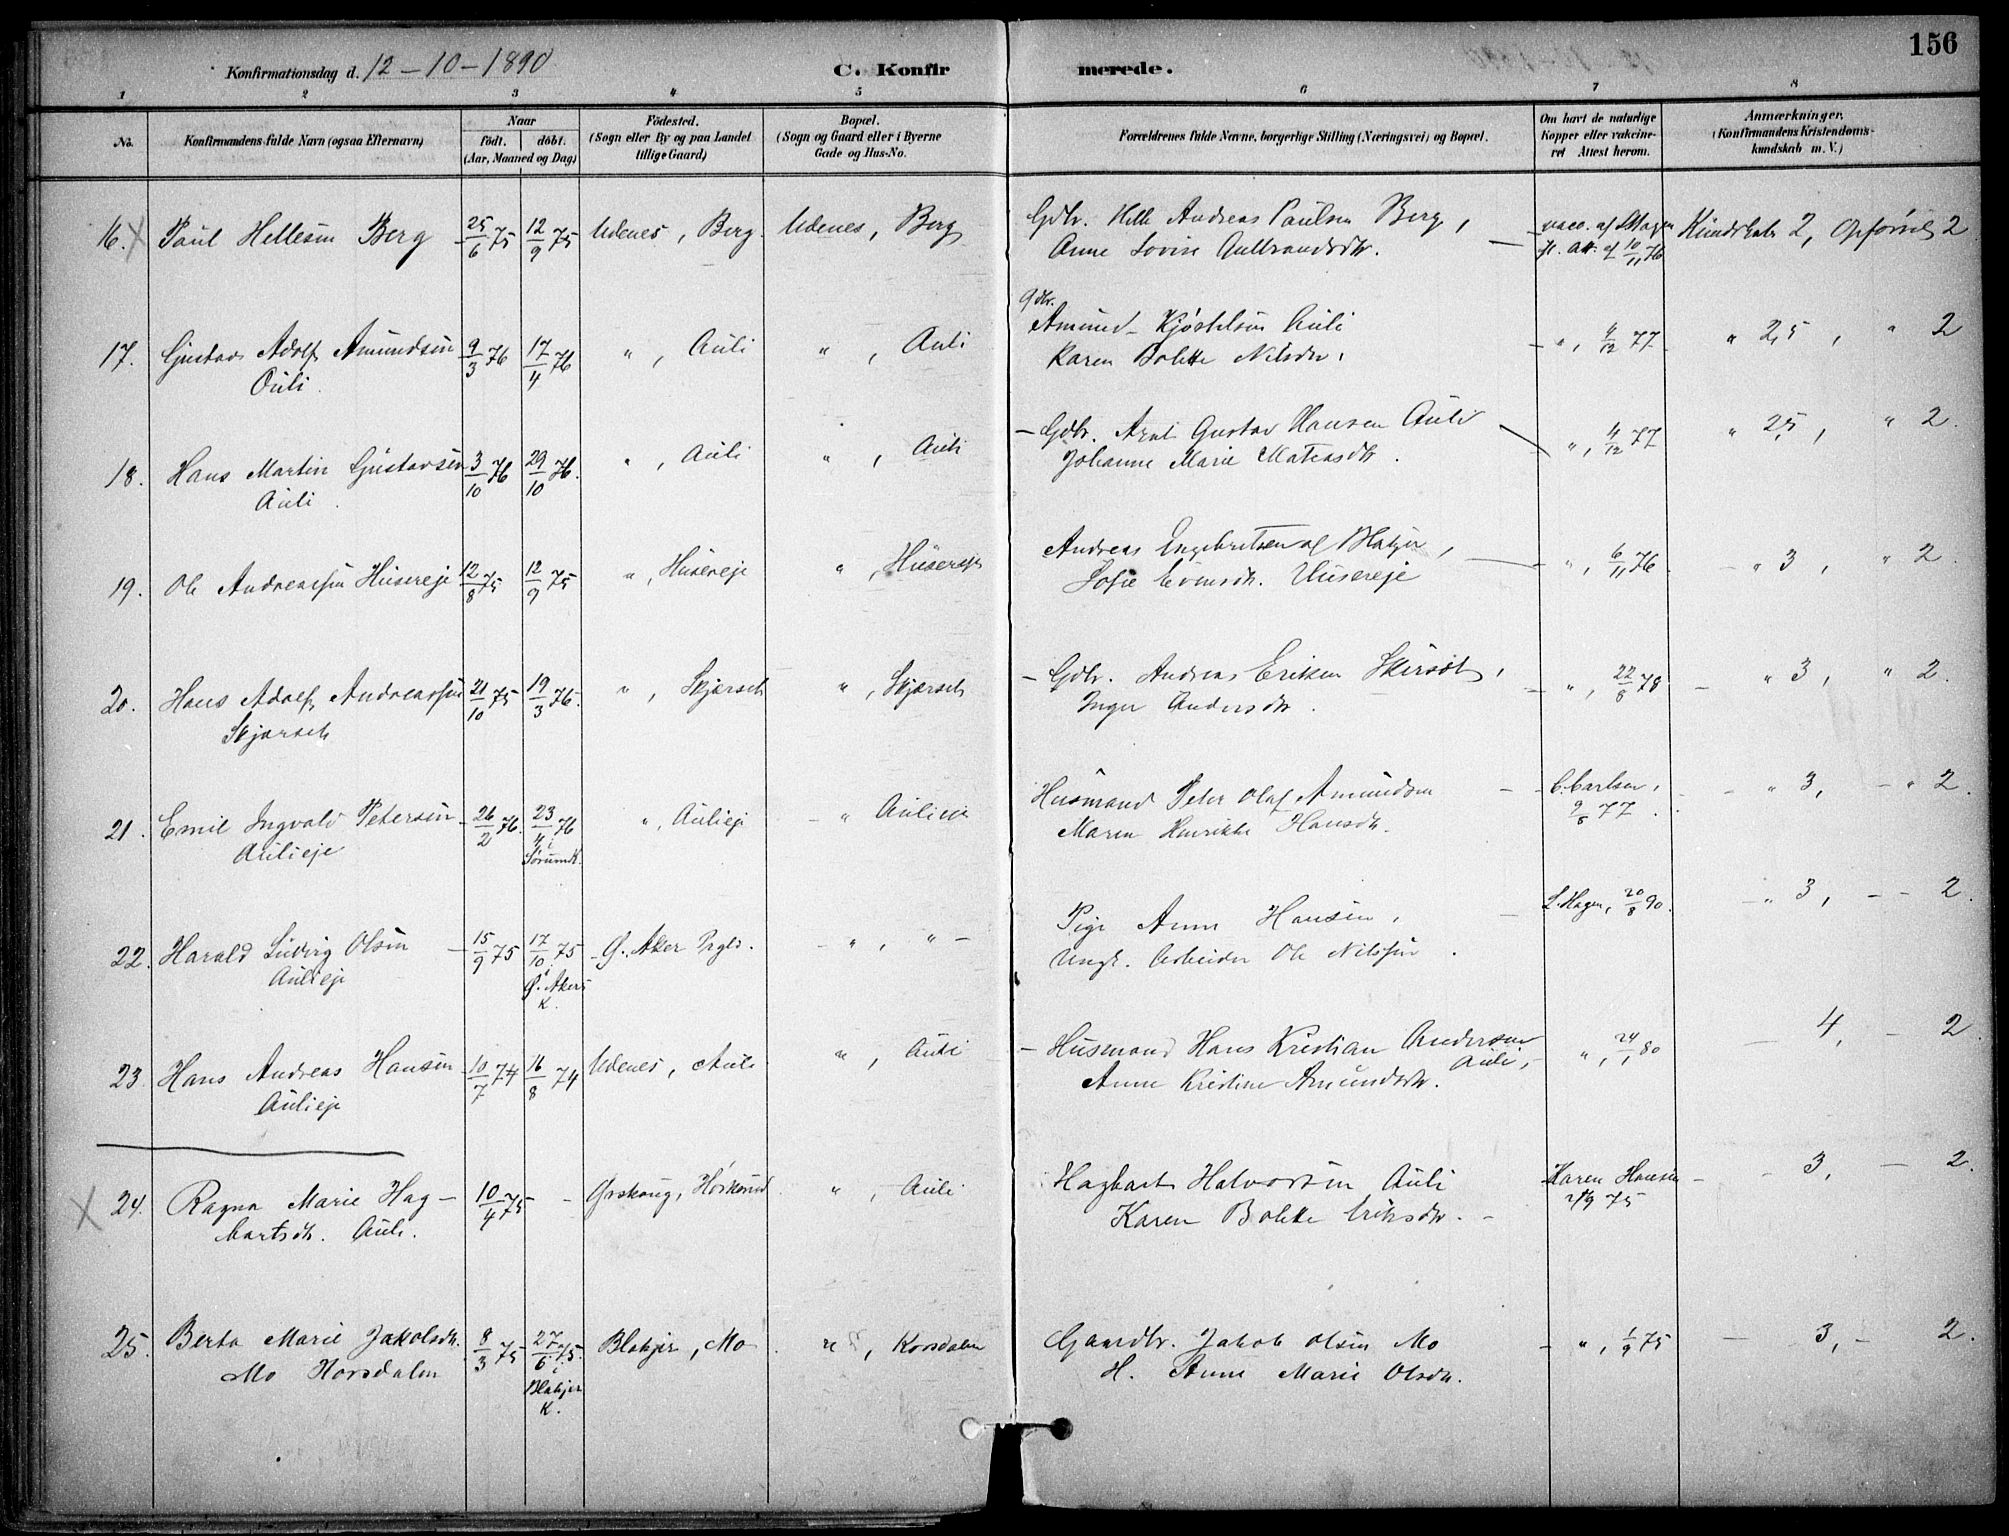 156
Konfirmationsdag d. 12-10-1890
C. Konfirmerede.
1 2 3 4 5 6 7 8
No.
Konfirmandens fulde Navn (ogsaa Efternavn)
Naar
födt. döbt.
(Aar, Maaned og Dag)
Födested.
(Sogn eller By og paa Landet
tillige Gaard)
Bopæl.
(Sogn og Gaard eller i Byerne
Gade og Hus-No.
Forældrenes fulde Navne, borgerlige Stilling (Næringsvei) og Bopæl.
Om havt de naturlige
Kopper eller vakcine-
ret Attest herom.
Anmærkninger,
(Konfirmandens Kristendoms-
kundskab m. V.)
16. X Paul Hellesen Berg 25/6 75 12/9 75 Udenes, Berg. Udenes, Berg
Gdbr. Helle Andreas Paulsen Berg,
Anne Lovise Gulbrandsdtr.
vacc. af Hagen
10/11 76
Kundskab 2, Opførsel 2
17. Gustav Adolf Amundsen
Auli.
9/3 76 17/4 76 ", Auli ", Auli
Gdbr.
Amund Kjøstelsen Auli
Karen Bolette Nilsdtr.
", 4/12 77 " 2,5, " 2
18. Hans Martin Gustavsen
Auli.
3/10 76 29/10 76. ", Auli ", Auli
- Gdbr. Arnt Gustav Hansen Auli
Johanne Marie Mateasdtr.
", 4/12 77 " 2,5, " 2.
19. Ole Andreassen Husereje 12/8 75 12/9 75 ", Husereje ", Husereje
Andreas Engebretsen af Blakjer,
Sofie Evensdtr. Husereje
", 6/11 76 " 3, " 2.
20. Hans Adolf Andreassen
Skjærseth
21/10 75 19/3 76. ", Skjærseth ", Skjærseth
- Gdbr. Andreas Eriksen
Inger Andersdtr.
", 22/8 78 " 3, " 2.
21. Emil Ingvald Petersen
Aulieje
26/2 76. 23/4 76
i
Sørum K.
", Aulieje " Aulieje
Husmand Peter Olaf Amundsen
Maren Henrikke Hansdtr.
C. Carlsen,
77. " 3, " 2.
22. Harald Ludvig Olsen
Aulieje
15/9 75 17/10 75
i
Ø. Akers
K.
Ø. Aker Prgld. ", " -
Pige Anne Hansen,
Ungk. Arbeider Ole Nilssen.
L. Hagen, 20/8 90. " 3, - - 2.
23. Hans Andreas Hansen
Aulieje
10/7 74 16/8 74 Udenes, Auli ", Auli
- Husmand Hans Kristian Andersen
Auli,
Anne Kristine Amundsdtr.
", 24/1 80 4, - 2.
X 24. Ragna Marie Hag-
bartsdtr. Auli.
10/4 75 - - Ørskoug, ", Auli
Hagbart Halvorsen Auli
Karen Bolette Eriksdtr. -
Karen Hansen
75 3, - 2.
25. Berta Marie Jakobsdtr.
Mo Korsdalen
8/3 75 27/6 75.
i
Blakjer
K.
Blakjer, Mo. ", Korsdalen
Gaardbr. Jakob Olsen Mo
H. Anne Marie Olsdtr.
", 1/9 75 3, - 2.